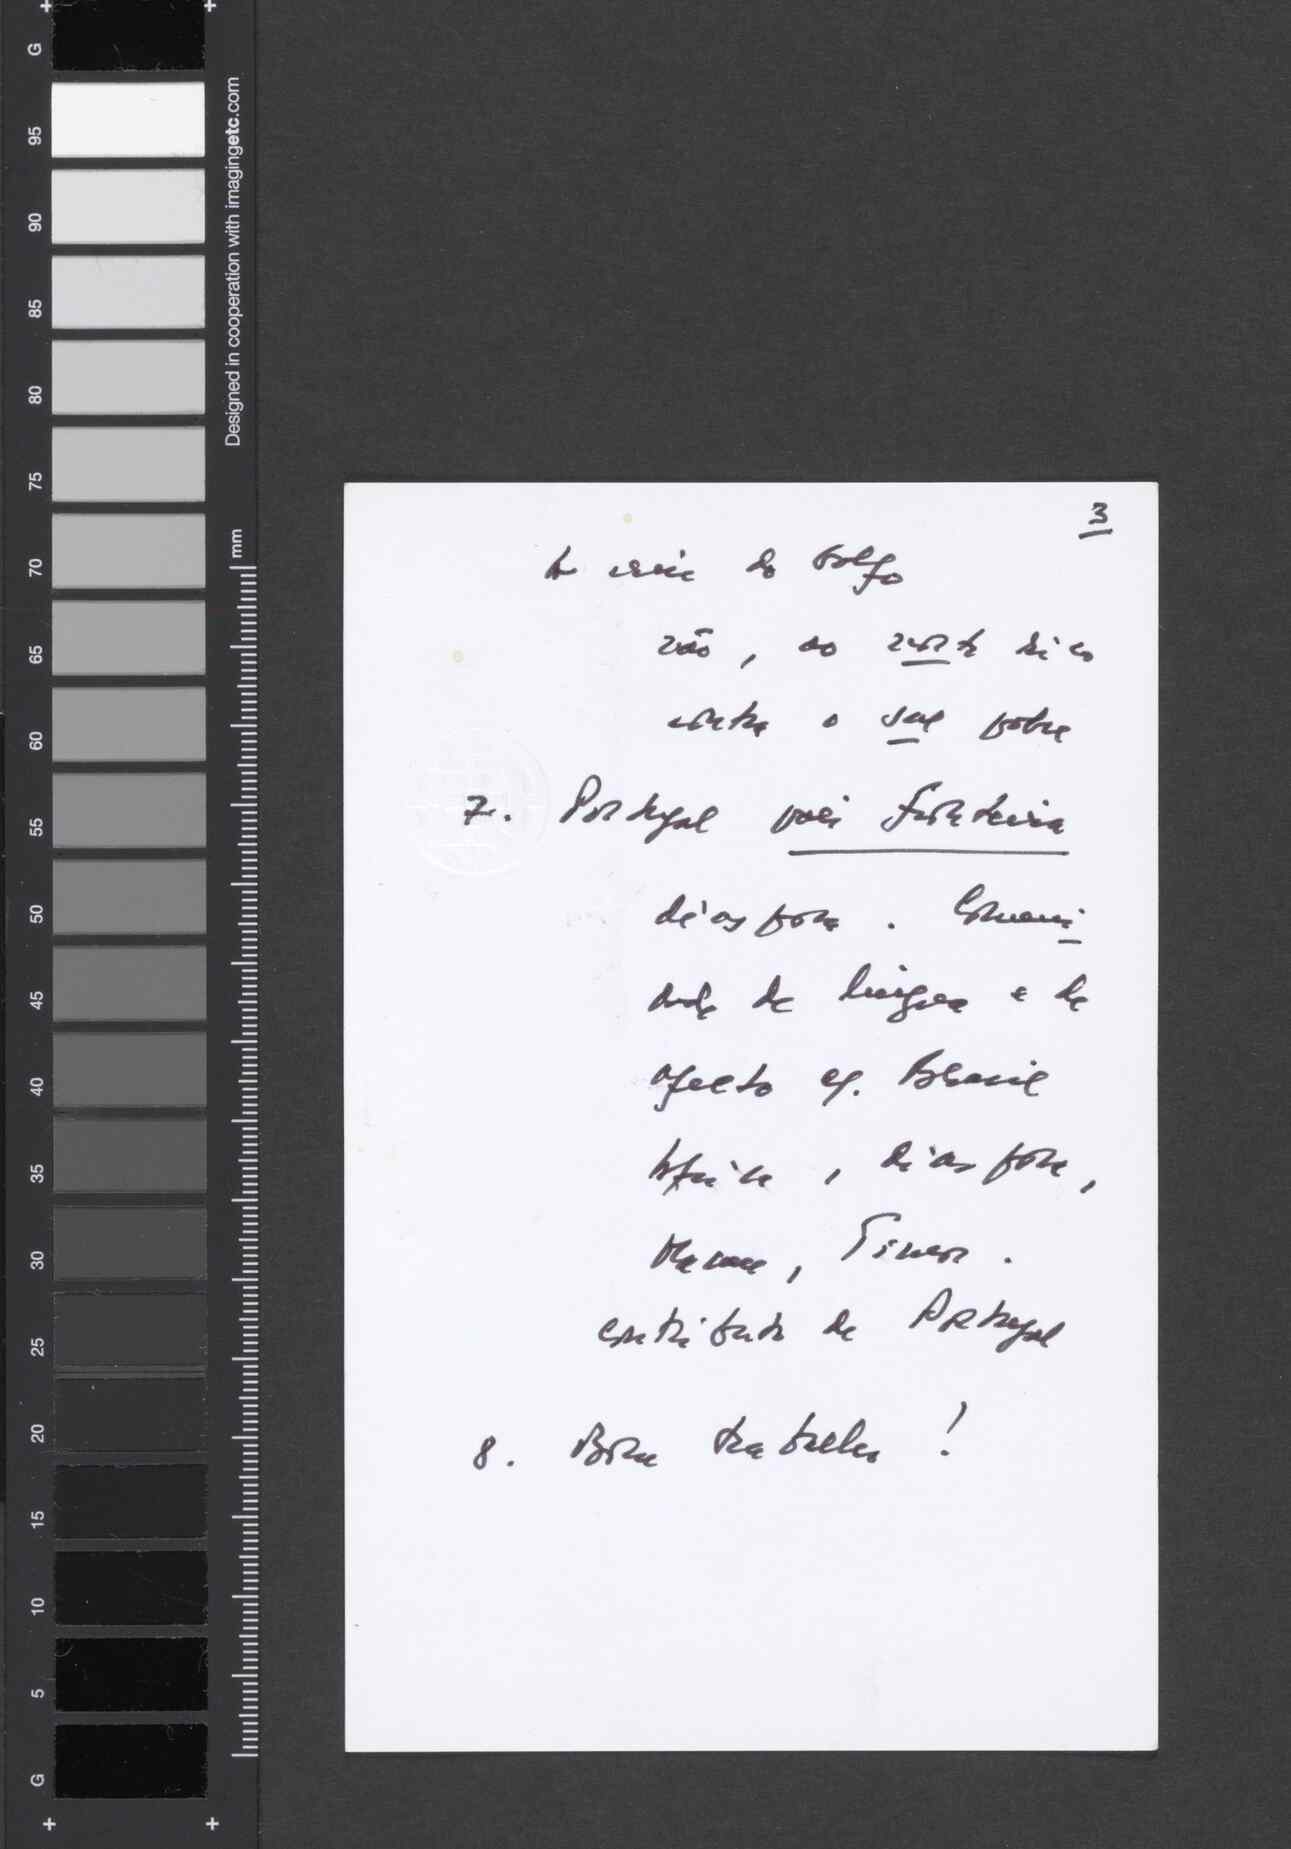 3
A crise do Golfo
não, ao norte rico
contra o sul pobre
7. Portugal país fronteira
diáspora. Comuni
dade de língua e de
afecto c/. Brasil
África, diáspora,
Macau, Timor.
contributo de Portugal
8. Bom trabalho!
G
95
90
85
80
75
70
65
60
55
50
45
40
35
30
25
20
15
10
5
G
Designed in cooperation with imagingetc.com
mm